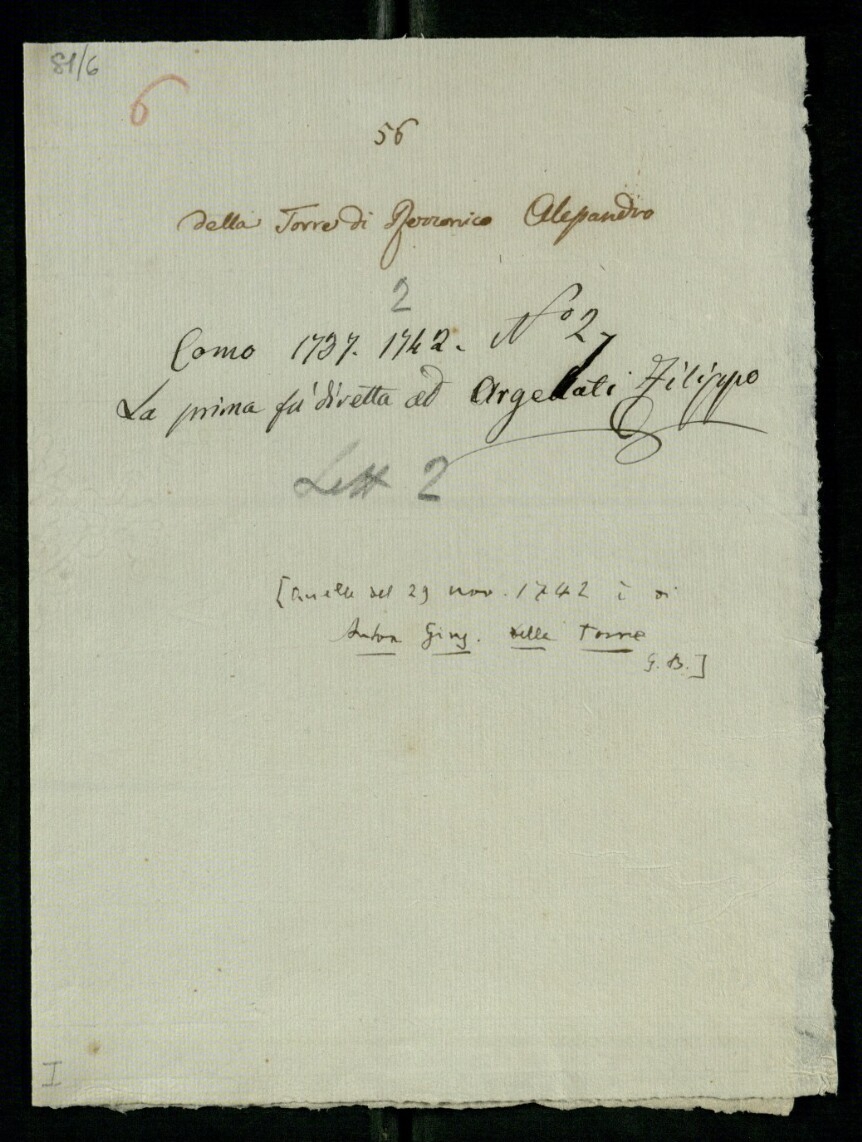 81/6
6
56
della Torre di Rezzonico Alessandro
2
Como 1737. 1742. No 2
La prima fu diretta ad Argellati Filippo
Lett 2
[Quella del 29 nov. 1742 è di
Anton Gius. della Torre
G. B.]
I